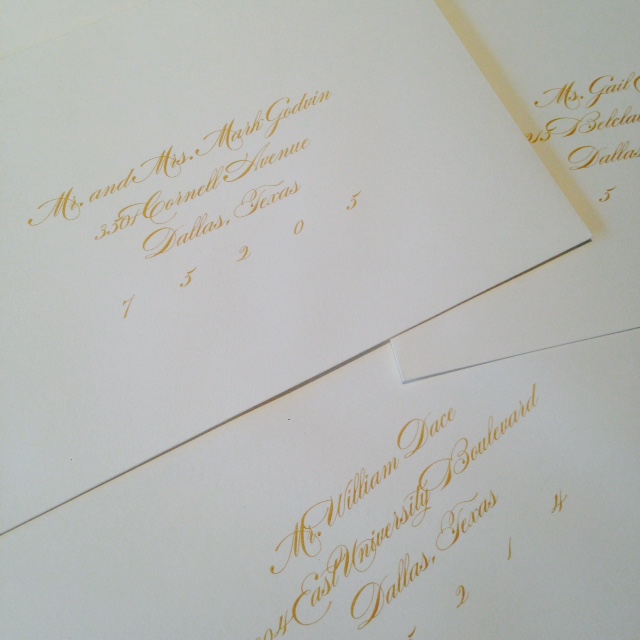 Mr. and Mrs. Mark Gaduin
Cornell Avenue
Dallas, Texas
7 5 2 0 5
Mr. Gail
Dallas
5
Mr. William Duce
East University Boulevard
Dallas, Texas
2 1